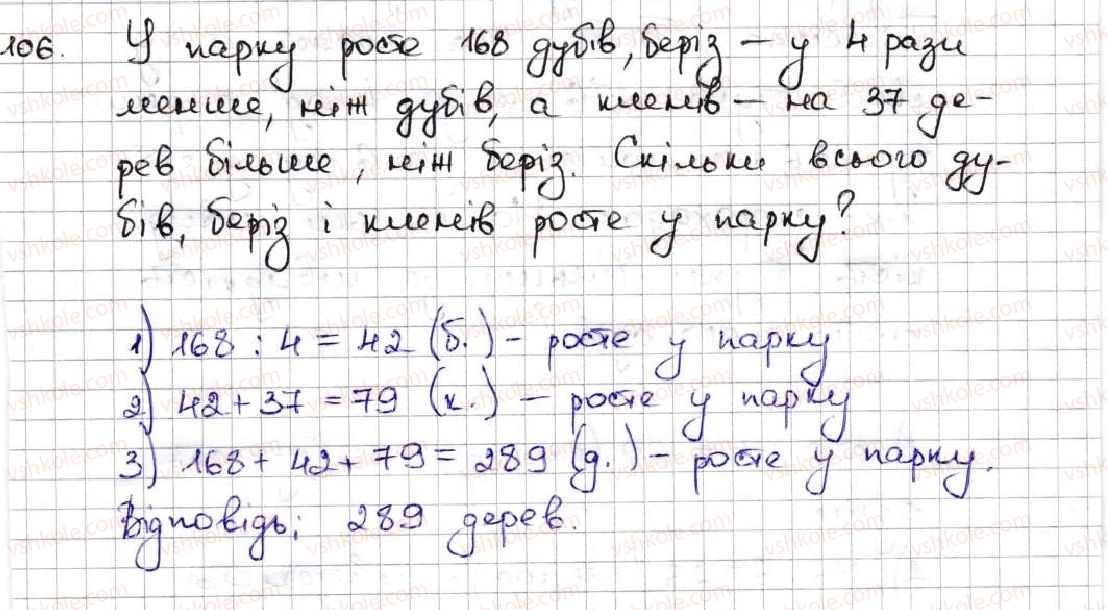 106. У парку росте 168 дубів, беріз – у 4 рази
менше, ніж дубів, а кленів – на 37 де-
рев більше, ніж беріз. Скільки всього ду-
бів, беріз і кленів росте у парку?
1) 168 : 4 = 42 (б.) – росте у парку
2) 42 + 37 = 79 (к.) – росте у парку
3) 168 + 42 + 79 = 289 (д.) – росте у парку.
Відповідь: 289 дерев.